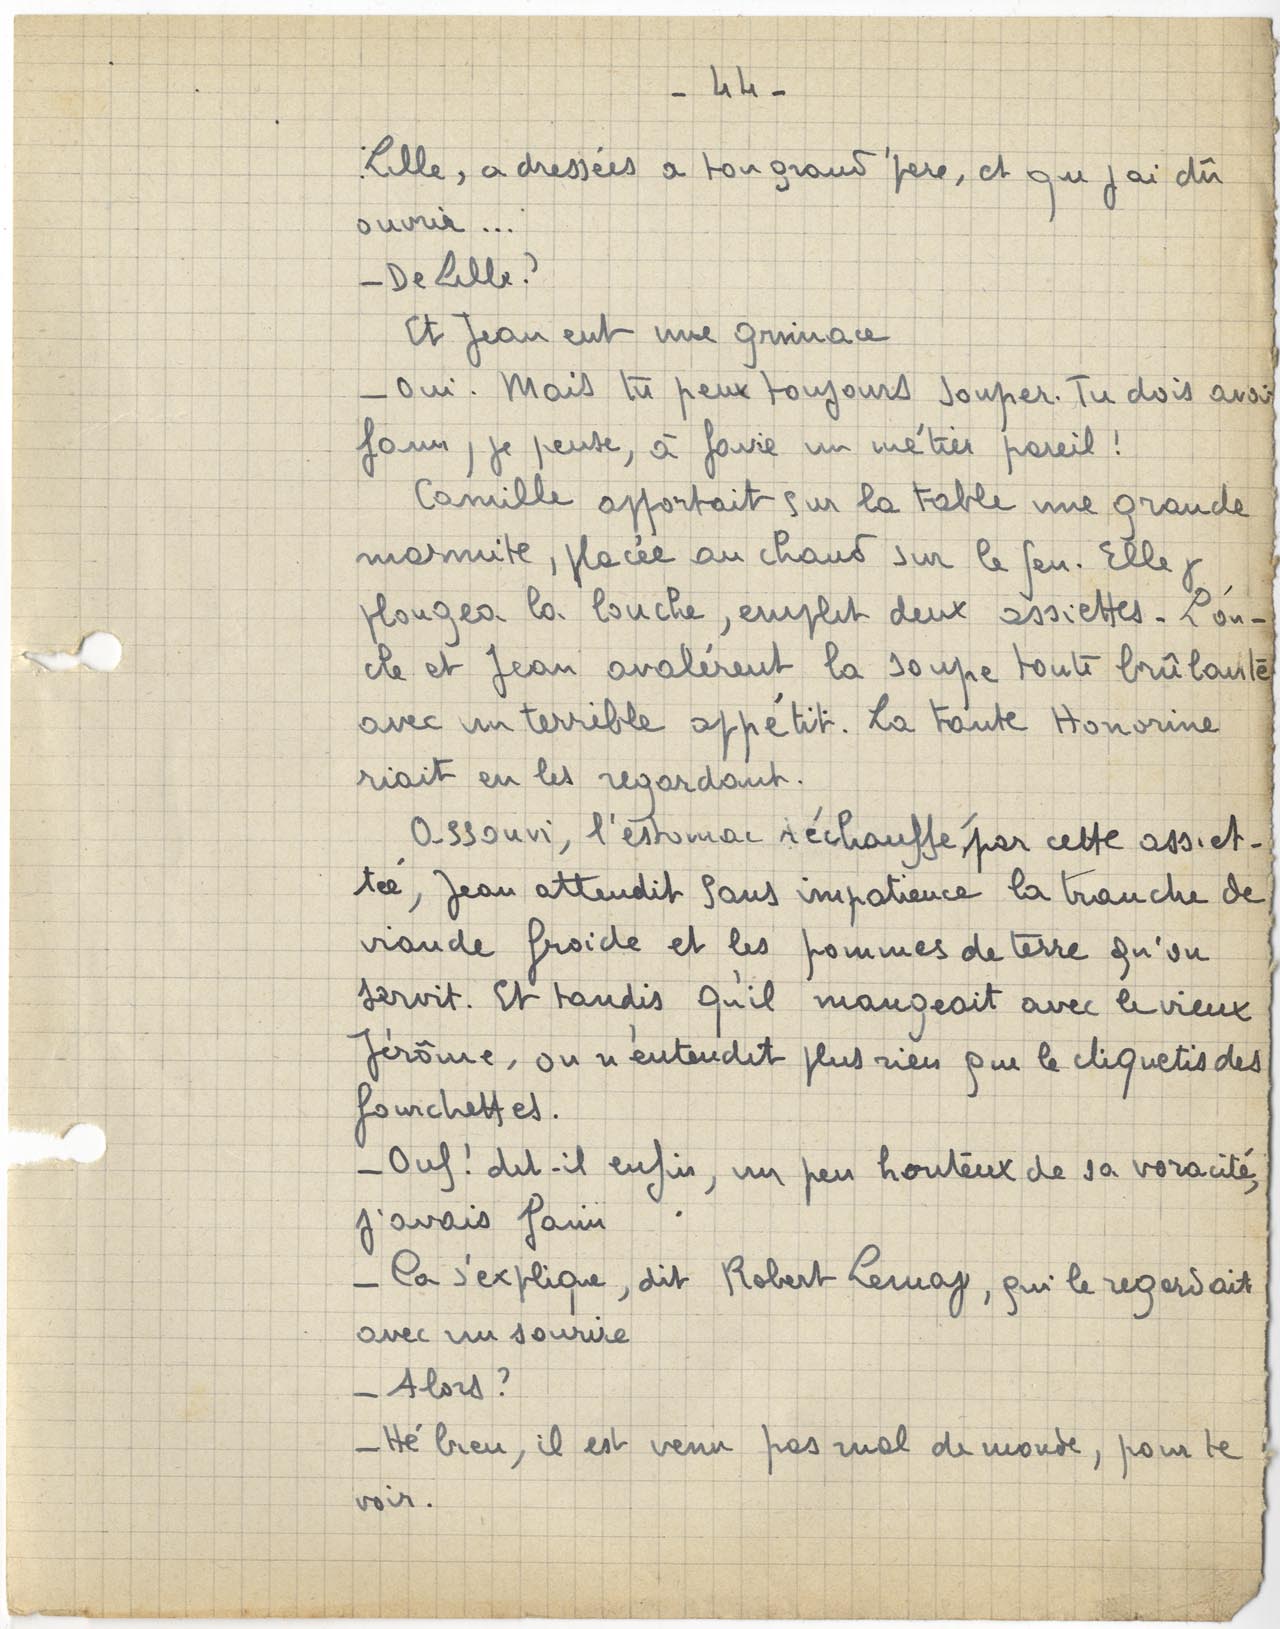 - 44 -
Lille, adressées a ton grand'père, et que j'ai dû
ouvrir ...
- De Lille ?
Et Jean eut une grimace
- Oui. Mais tu peux toujours souper. Tu dois avoir
faim, je pense, à faire un métier pareil !
Camille apportait sur la table une grande
marmite, placée au chaud sur le feu. Elle y
plongea la louche, emplit deux assiettes - L'on-
cle et Jean avalèrent la soupe toute brûlante
avec un terrible appétit. La tante Honorine
riait en les regardant.
Assouvi, l'estomac réchauffé, par cette assiet-
tée, Jean attendit sans impatience la tranche de
viande froide et les pommes de terre qu'on
servit. Et tandis qu'il mangeait avec le vieux
Jérôme, on n'entendit plus rien que le cliquetis des
fourchettes.
- Ouf ! dit-il enfin, un peu honteux de sa voracité,
j'avais faim
- Ca s'explique, dit Robert Lemay, qui le regardait
avec un sourire
- Alors ?
- Hé bien, il est venu pas mal de monde, pour te
voir.